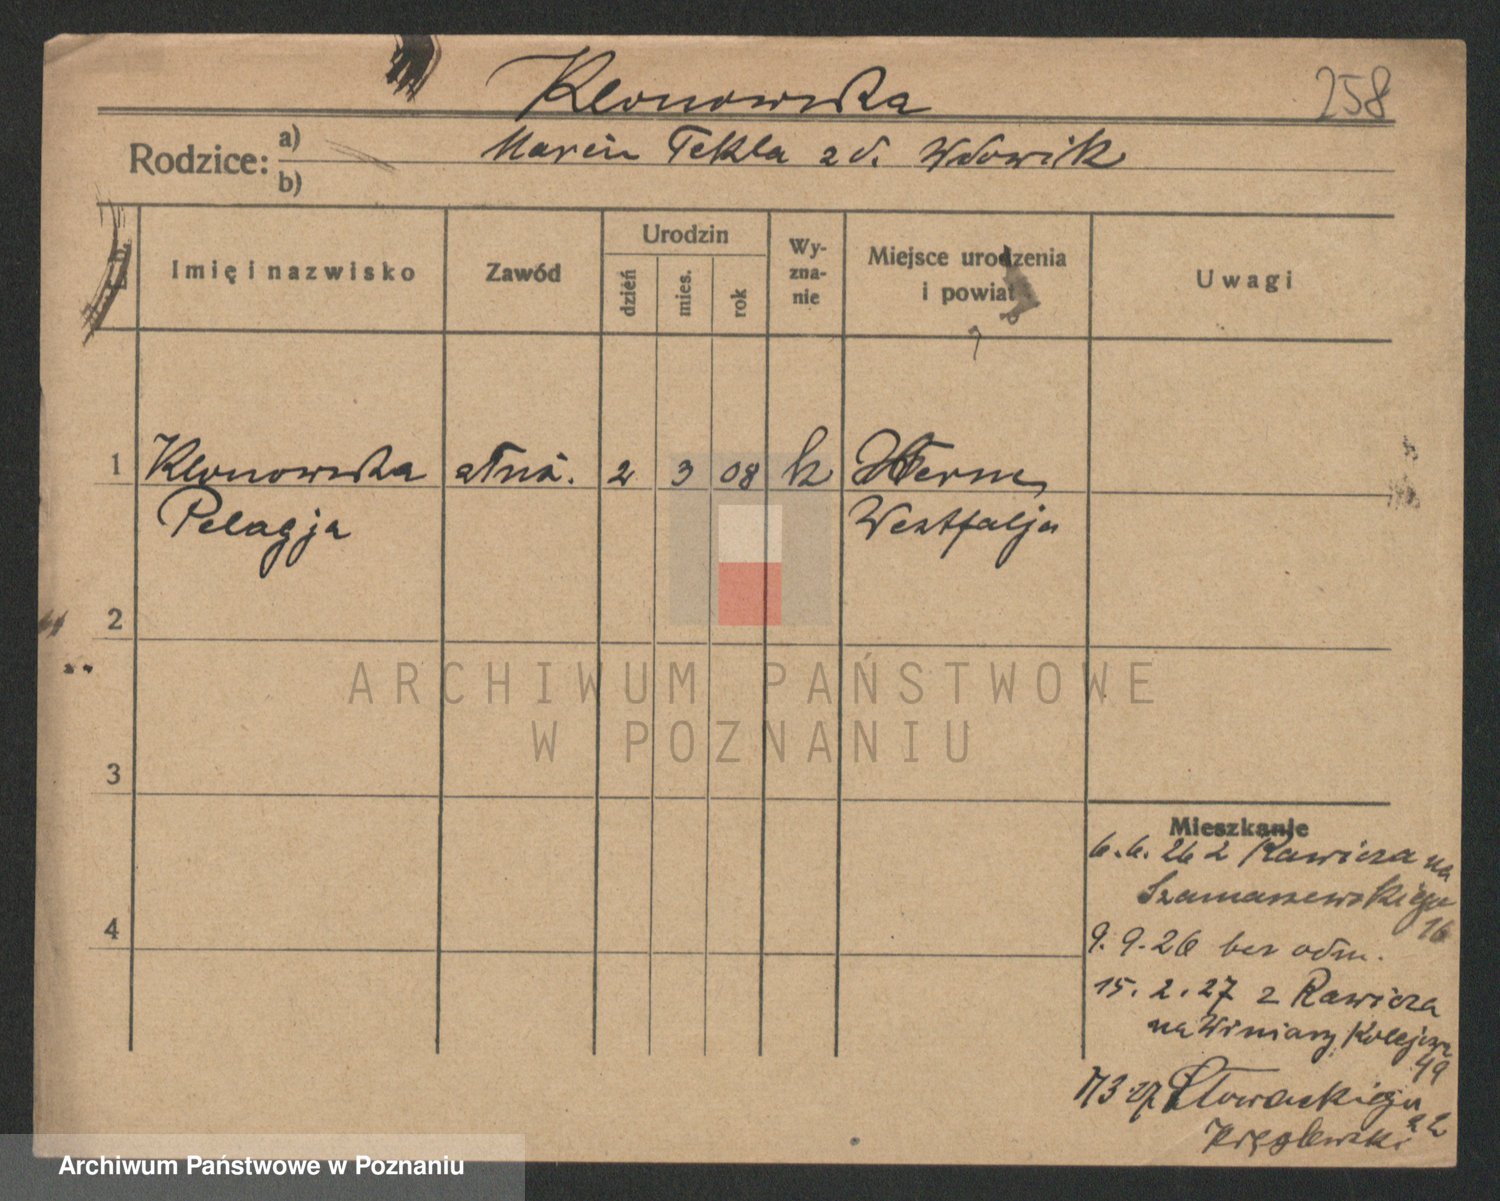 Klonowska
258
Rodzice: a) Marcin Tekla zd. Wdowik
b)
Imię i nazwisko
Zawód
Urodzin
dzień
mies.
rok
Wy-
zna-
nie
Miejsce urodzenia
i powiat
Uwagi
1 Klonowska służ. 2 3 08 k Herne
Pelagja Westfalja
2
3
4
Mieszkanie
6.6.26 z Rawicza na
Szamarzewskiego
16
9.9.26 bez odm.
15.2.27 z Rawicza
na Winiary Kolejowa
49
3 27 Słowackiego
22
Kręglewski
ARCHIWUM PAŃSTWOWE
W POZNANIU
Archiwum Państwowe w Poznaniu